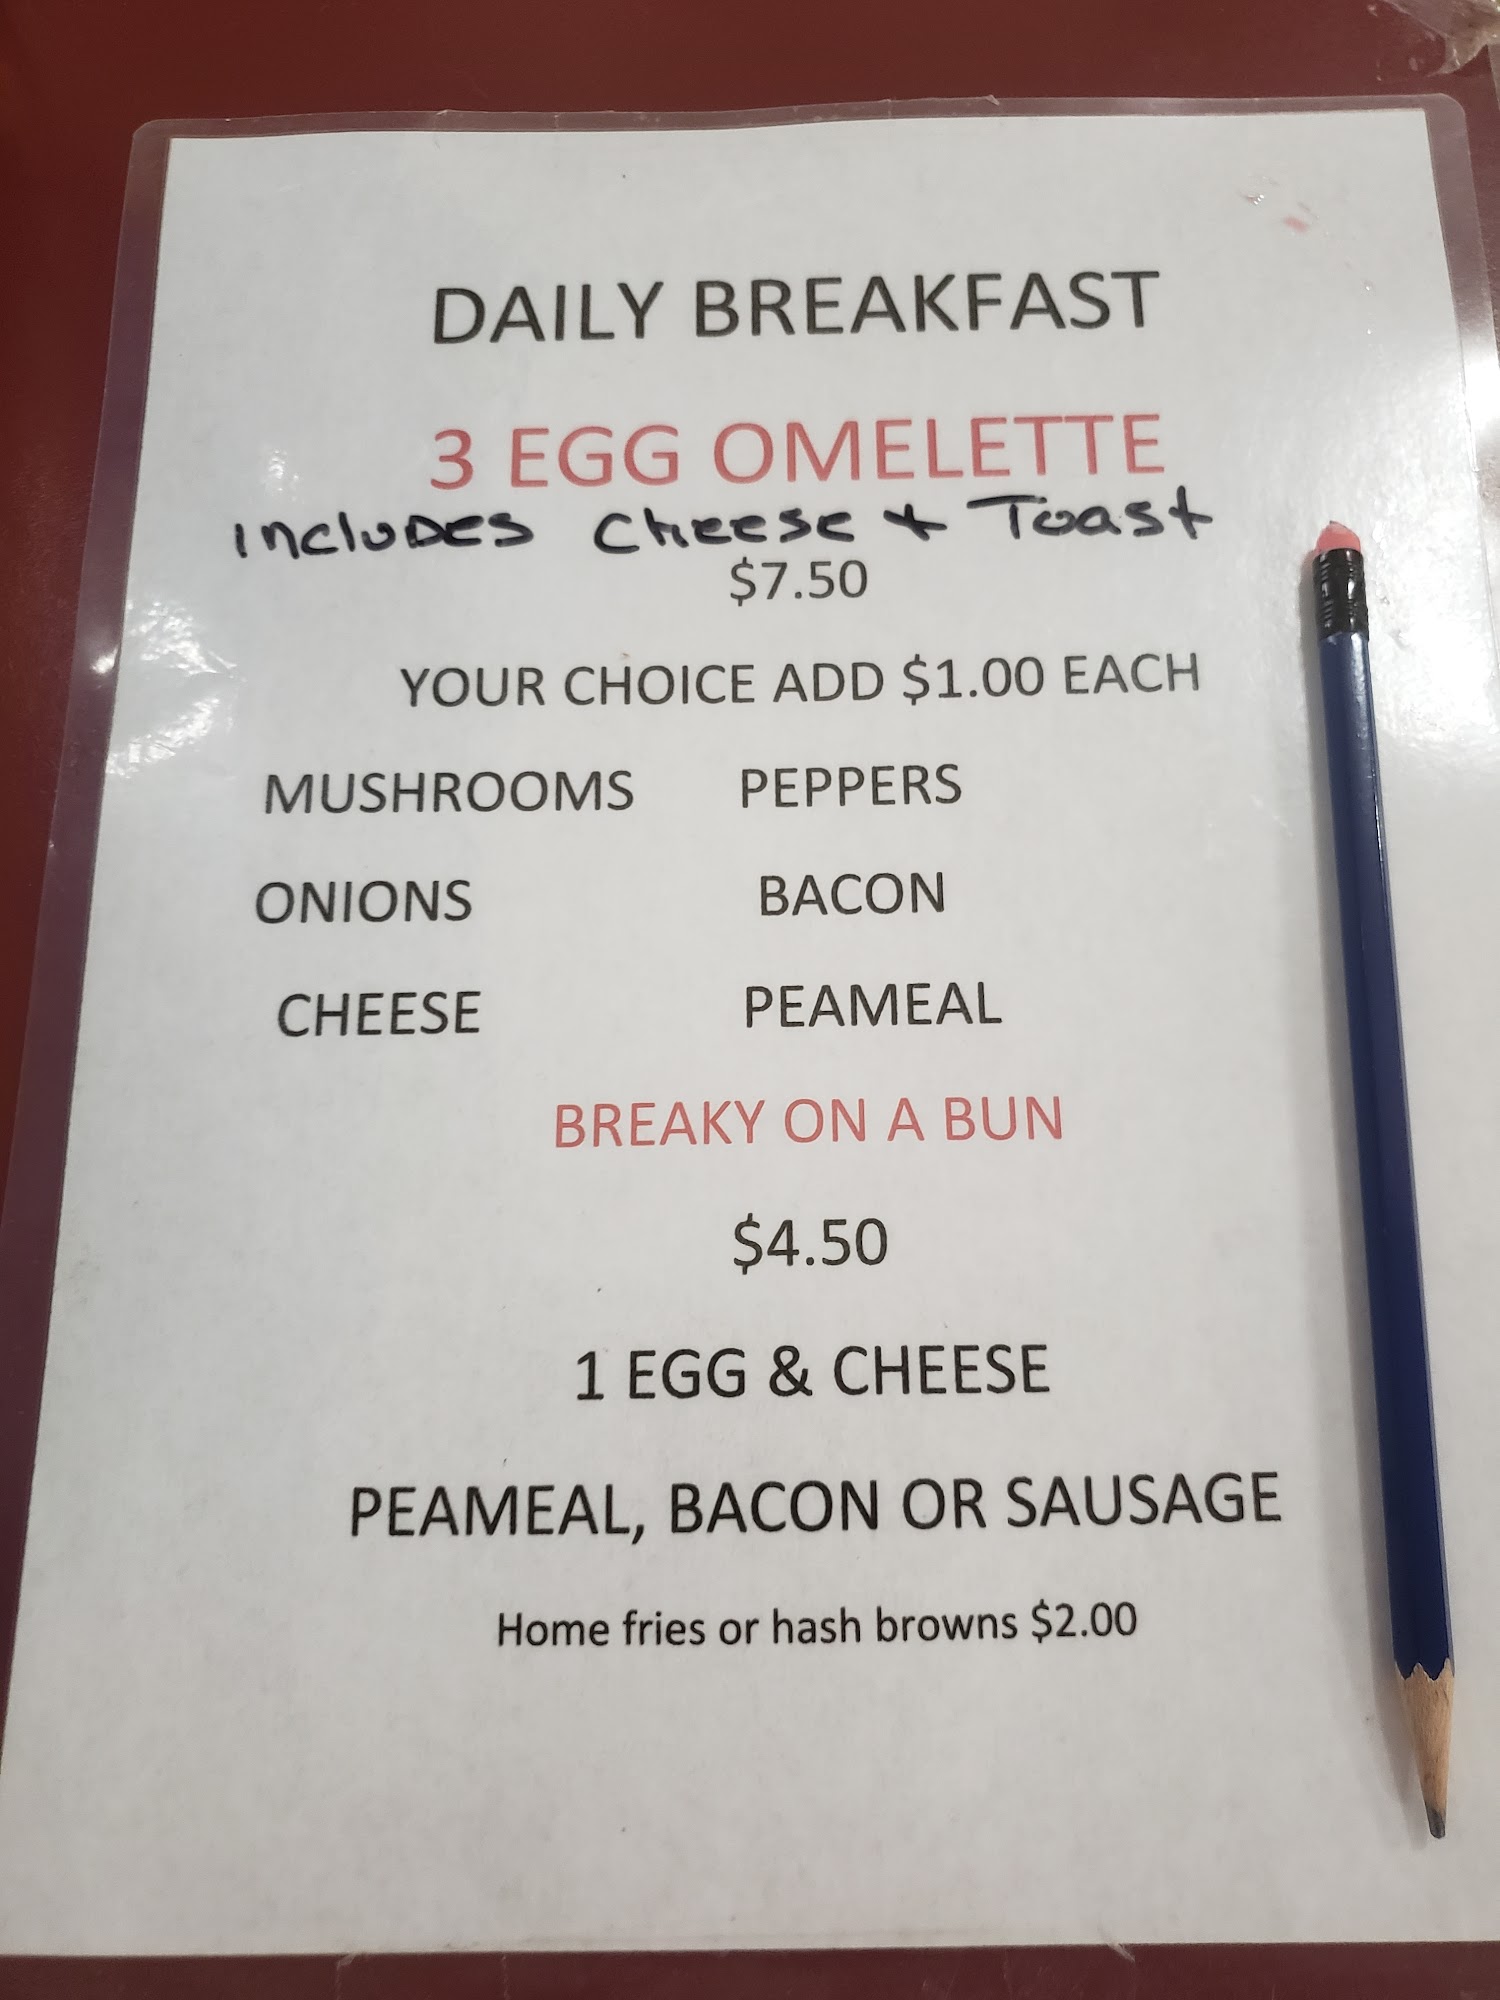 DAILY BREAKFAST
3 EGG OMELETTE
Includes Cheese + Toast
$7.50
YOUR CHOICE ADD $1.00 EACH
MUSHROOMS PEPPERS
ONIONS BACON
CHEESE PEAMEAL
BREAKY ON A BUN
$4.50
1 EGG & CHEESE
PEAMEAL, BACON OR SAUSAGE
Home fries or hash browns $2.00